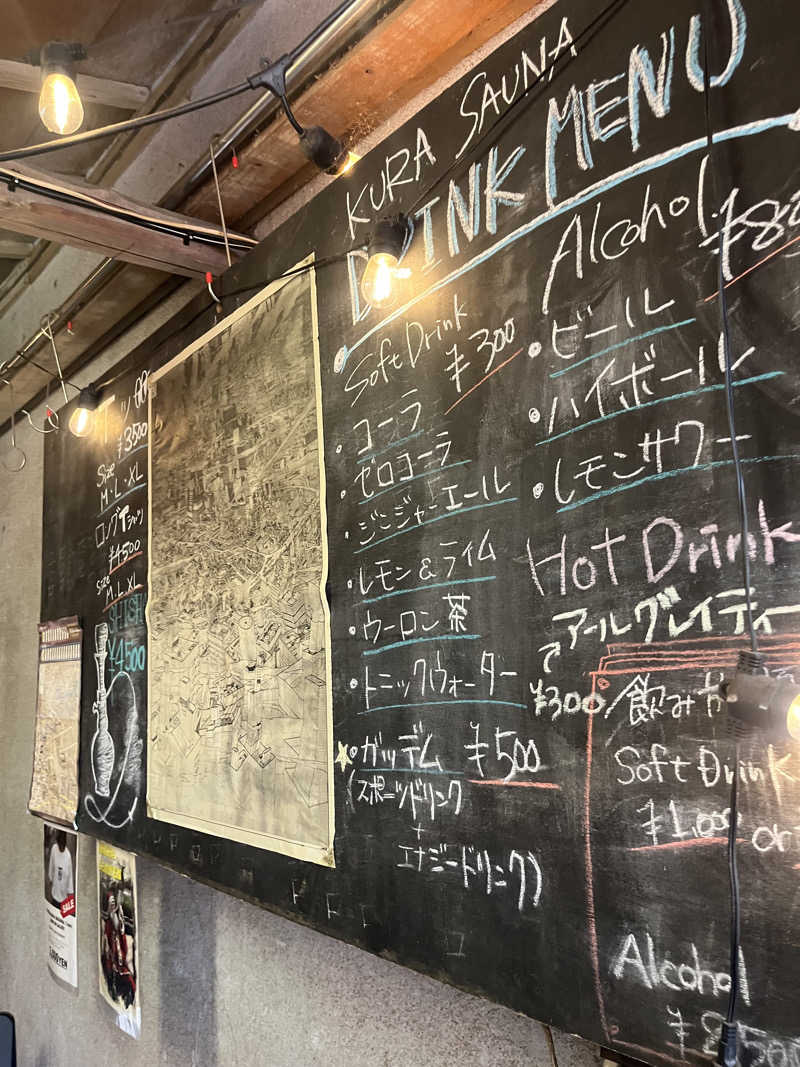 KURA SAUNA
DRINK MENU
Soft Drink
¥300
・コーラ
・ゼロコーラ
・ジンジャーエール
・レモン&ライム
・ウーロン茶
・トニックウォーター
・ガッデム ¥500
(スポーツドリンク
+
エナジードリンク)
Alcohol
・ビール
・ハイボール
・レモンサワー
Hot Drink
アールグレイティー
¥300
飲み
Soft Drink
¥1,000
or
Alcohol
¥3500
Size
M・L・XL
ロングTシャツ
¥4500
Size
M・L・XL
SHISHA
¥4500
SALE